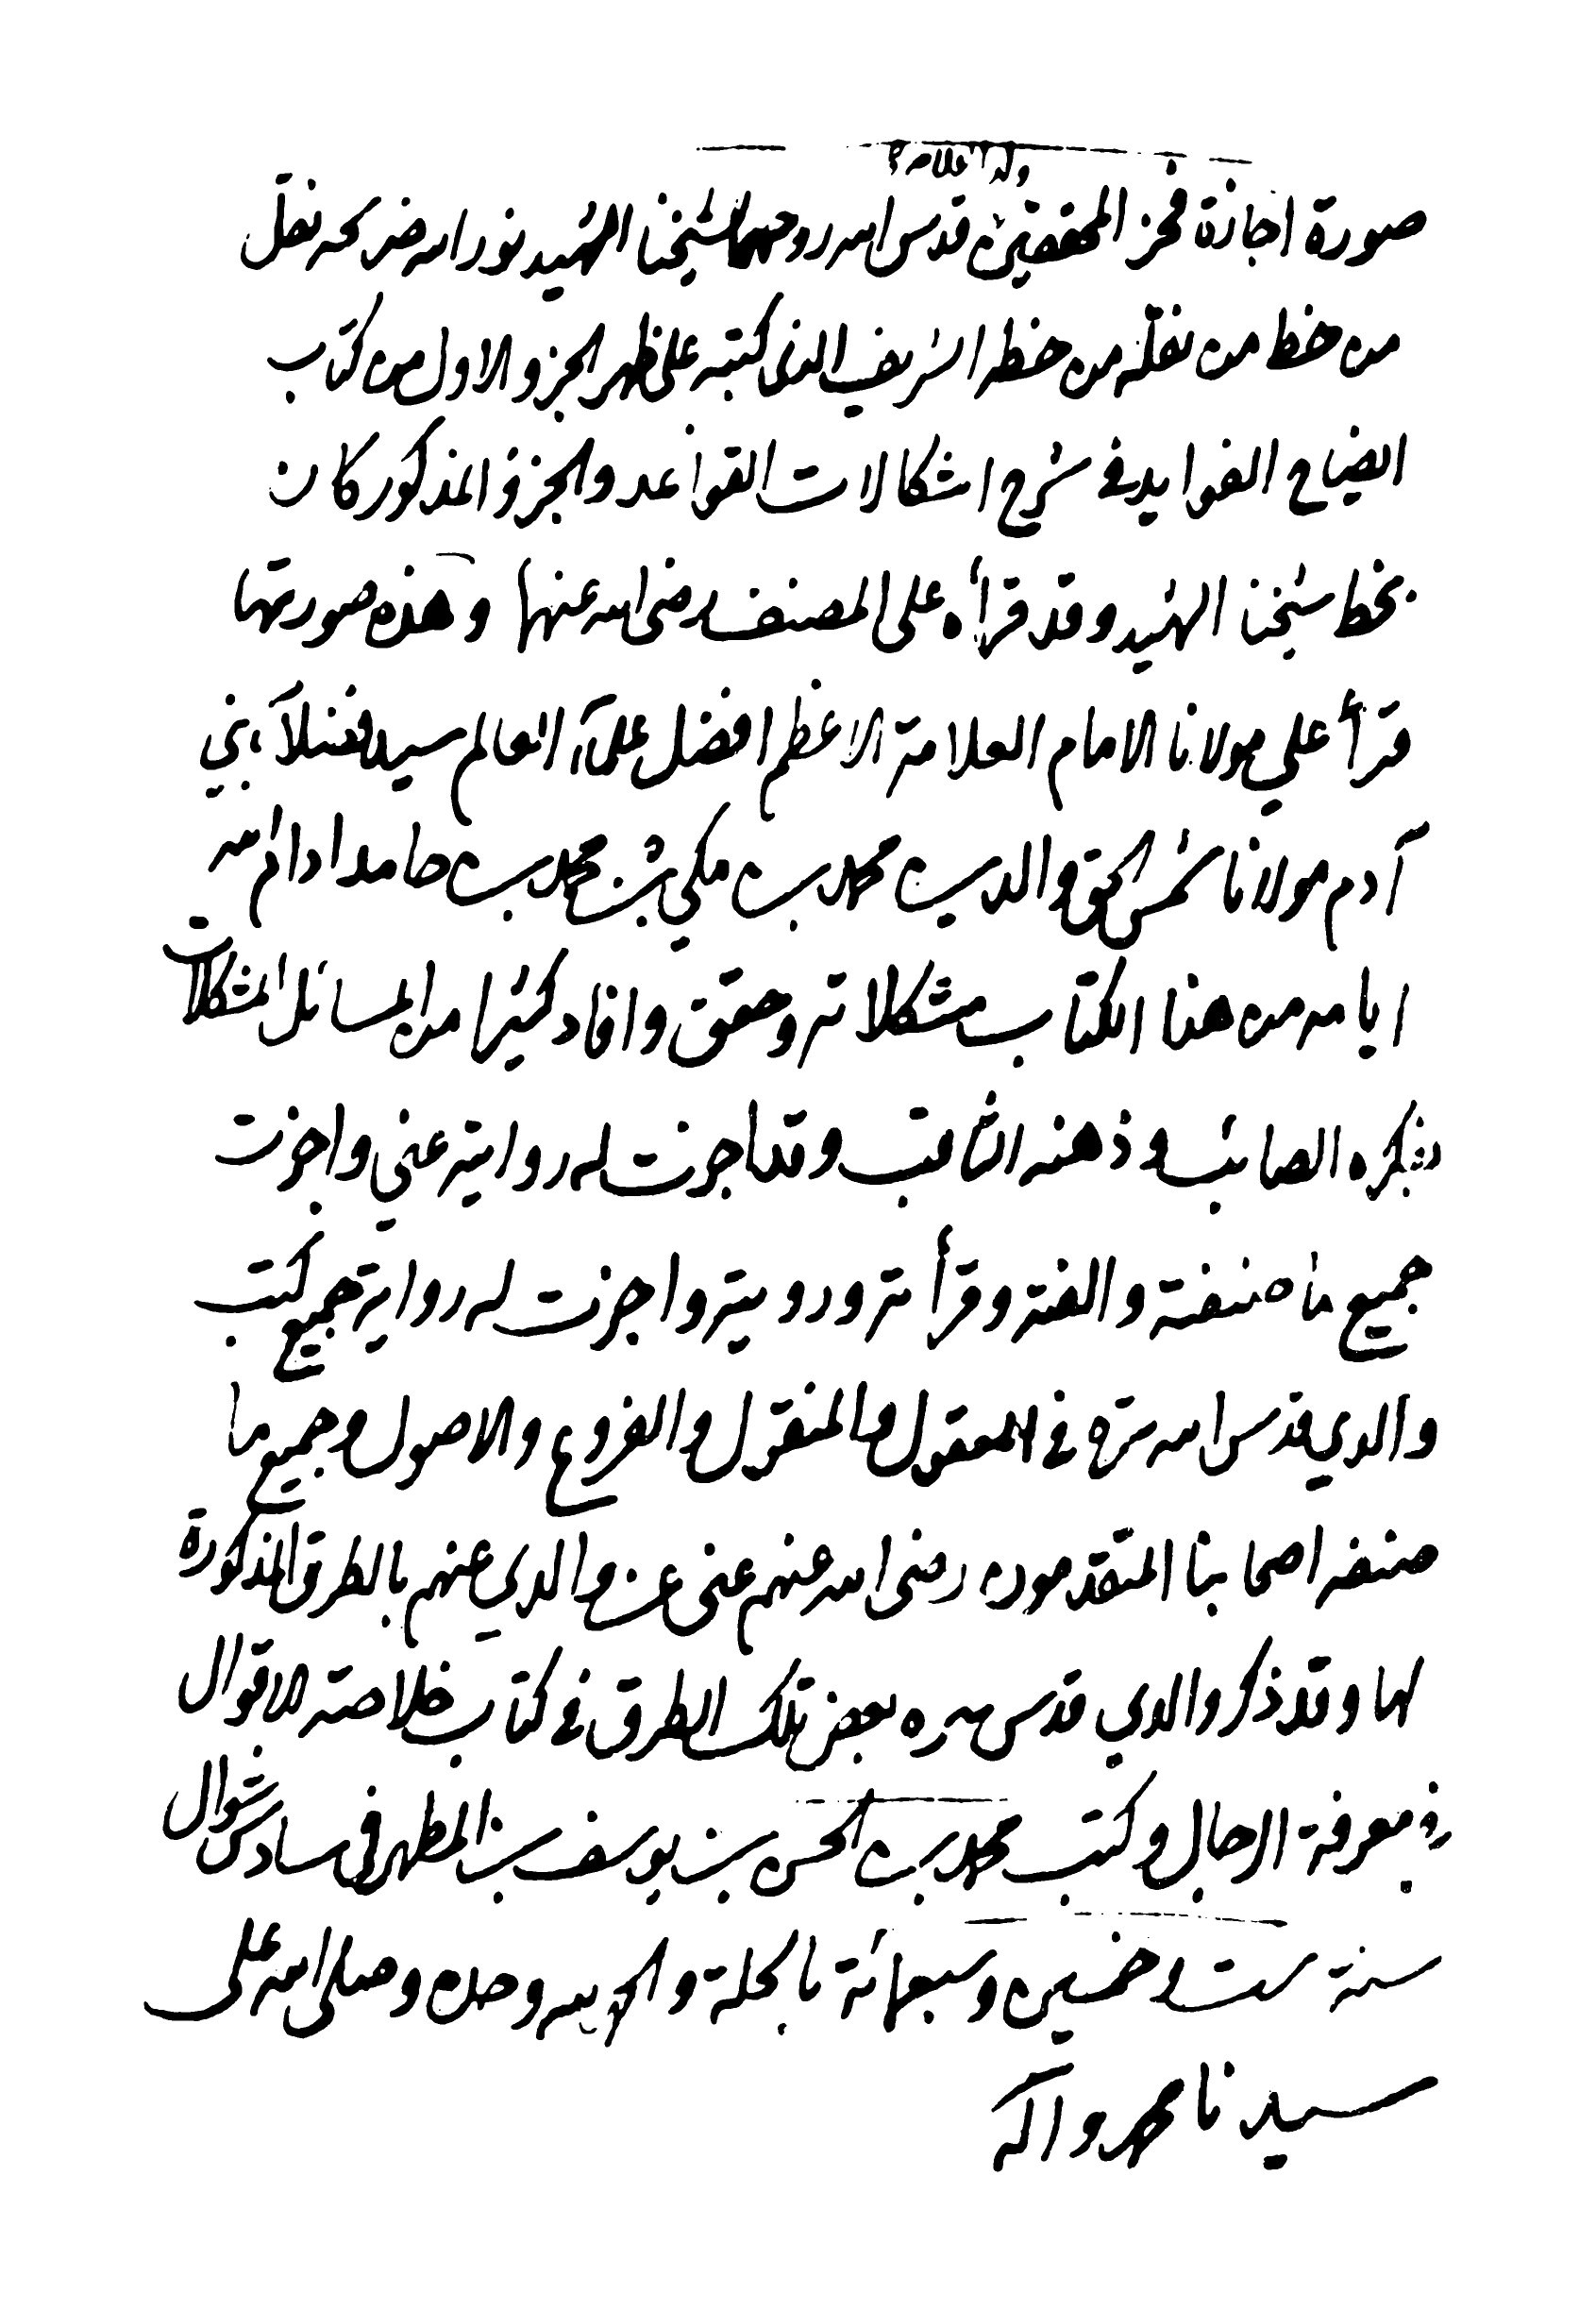 ولد العلامة
صورة اجازة فخر المحققين قدس الله روحهما لشيخنا الشهيد نور الله ضريحه نقلت
من خط من نقله من خطه الشريف الذى كتبه على ظهر الجزو الاول من كتاب
ايضاح الفوايد فى شرح اشكالات القواعد والجزو المذكور كان
بخط شيخنا الشهيد وقد قرأه على المصنف رضى الله عنهما وهذه صورتها
قرأ علي مولانا الامام العلامة الاعظم افضل علماء العالم سيد فضلاء بني
آدم مولانا شمس الحق والدين محمد بن مكي بن محمد بن حامد ادام الله
ايامه من هذا الكتاب مشكلاته وحقق وافاد كثيرا من المسائل المشكلات
بفكره الصائب وذهنه الثاقب وقد اجزت له روايته عني واجزت
جميع ما صنفته والفته وقرأته ورويته واجزت له رواية جميع كتب
والدي قدس الله سره في المعقول والمنقول والفروع والاصول وجميع ما
صنفه اصحابنا المتقدمون رضى الله عنهم عني عن والدي عنهم بالطرق المذكورة
لها وقد ذكر والدي قدس سره بعض تلك الطرق في كتاب خلاصة الاقوال
في معرفة الرجال وكتب محمد بن الحسن بن يوسف بن المطهر فى سادس شوال
سنة ست وخمسين وسبعمائة بالحلة والحمد لله وحده وصلى الله على
سيدنا محمد واله